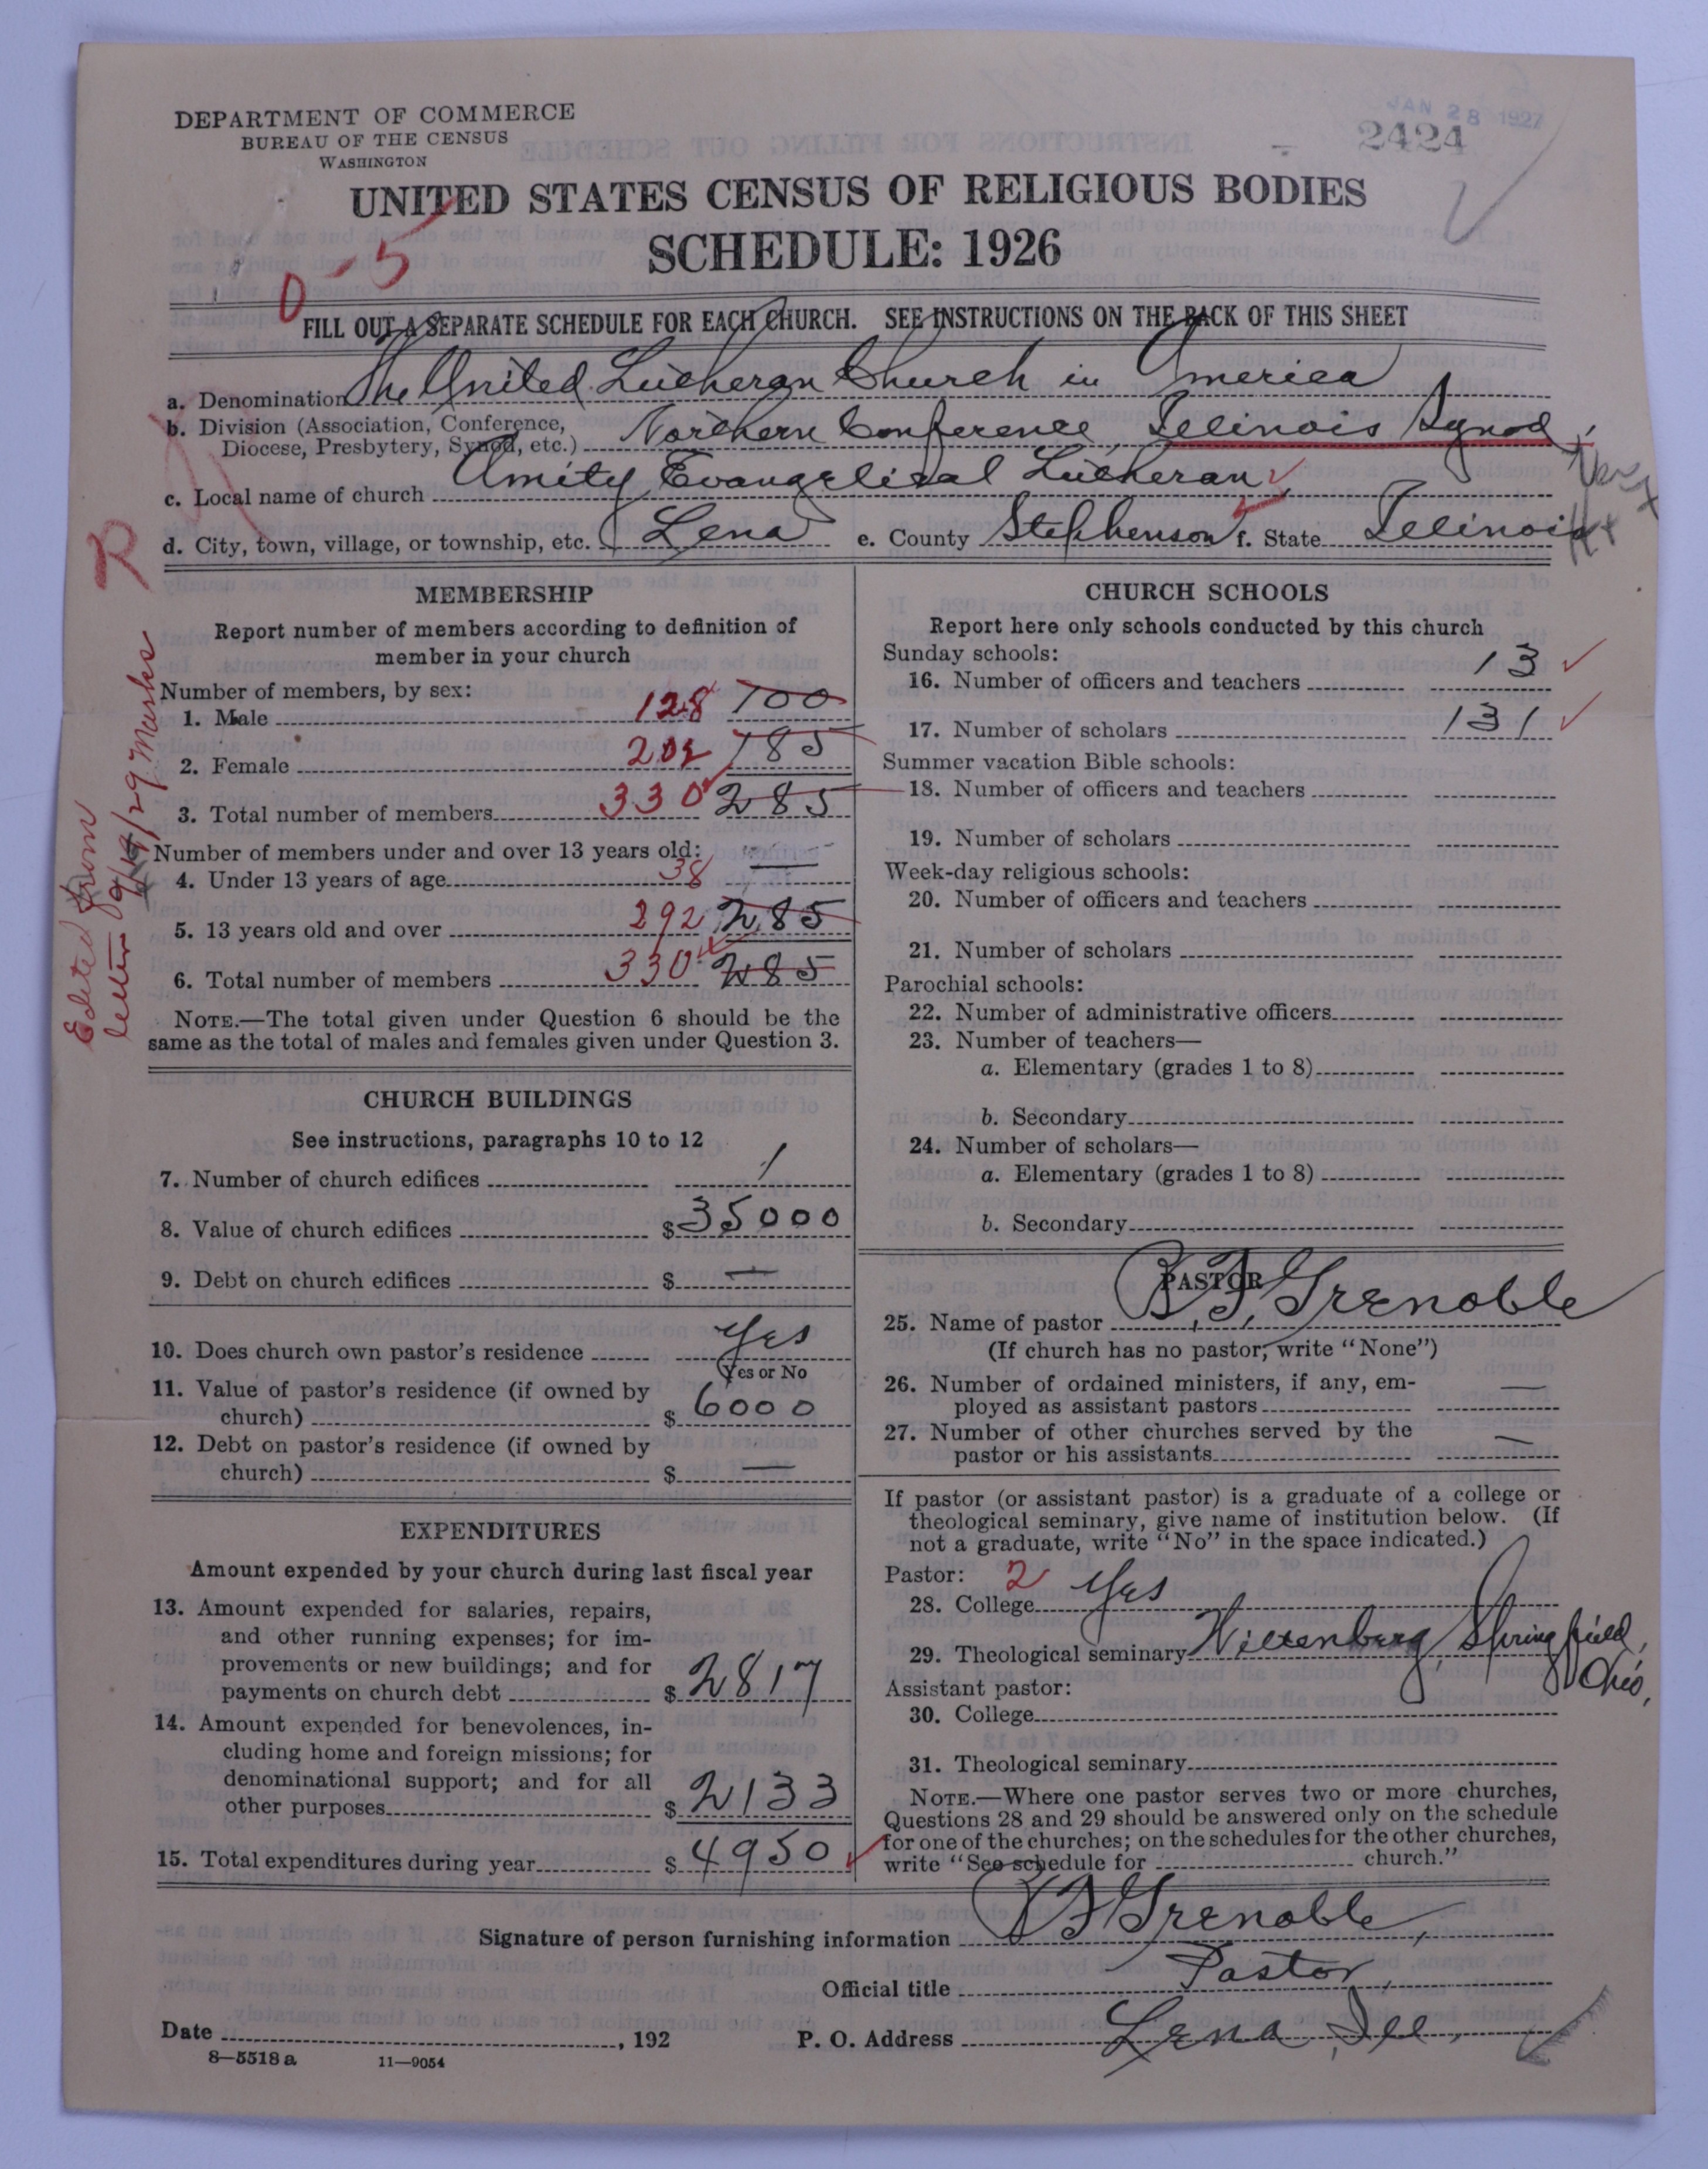 JAN 28 1927
2424
DEPARTMENT OF COMMERCE
BUREAU OF THE CENSUS
WASHINGTON
UNITED STATES CENSUS OF RELIGIOUS BODIES
SCHEDULE: 1926
0-5
FILL OUT A SEPARATE SCHEDULE FOR EACH CHURCH. SEE INSTRUCTIONS ON THE BACK OF THIS SHEET
a. Denomination The United Lutheran Church in America
b. Division (Association, Conference,
Diocese, Presbytery, Synod, etc.) Northern Conference, Illinois Synod
c. Local name of church Amity Evangelical Lutheran
d. City, town, village, or township, etc. Lena e. County Stephenson f. State Illinois
R
Edited from
letter 9/19/29
MEMBERSHIP
Report number of members according to definition of
member in your church
Number of members, by sex:
1. Male 128 100
2. Female 202 185
3. Total number of members 330 285
Number of members under and over 13 years old:
4. Under 13 years of age 38 —
5. 13 years old and over 292 285
6. Total number of members 330 285
NOTE.—The total given under Question 6 should be the
same as the total of males and females given under Question 3.
CHURCH BUILDINGS
See instructions, paragraphs 10 to 12
7. Number of church edifices 1
8. Value of church edifices $35000
9. Debt on church edifices $ —
10. Does church own pastor's residence Yes
(Yes or No
11. Value of pastor's residence (if owned by
church) $ 6000
12. Debt on pastor's residence (if owned by
church) $ —
EXPENDITURES
Amount expended by your church during last fiscal year
13. Amount expended for salaries, repairs,
and other running expenses; for im-
provements or new buildings; and for
payments on church debt $ 2817
14. Amount expended for benevolences, in-
cluding home and foreign missions; for
denominational support; and for all
other purposes $ 2133
15. Total expenditures during year $ 4950
CHURCH SCHOOLS
Report here only schools conducted by this church
Sunday schools:
16. Number of officers and teachers 13
17. Number of scholars 131
Summer vacation Bible schools:
18. Number of officers and teachers
19. Number of scholars
Week-day religious schools:
20. Number of officers and teachers
21. Number of scholars
Parochial schools:
22. Number of administrative officers
23. Number of teachers—
a. Elementary (grades 1 to 8)
b. Secondary
24. Number of scholars—
a. Elementary (grades 1 to 8)
b. Secondary
PASTOR
25. Name of pastor B. F. Grenoble
(If church has no pastor, write "None")
26. Number of ordained ministers, if any, em-
ployed as assistant pastors —
27. Number of other churches served by the
pastor or his assistants —
If pastor (or assistant pastor) is a graduate of a college or
theological seminary, give name of institution below. (If
not a graduate, write "No" in the space indicated.)
Pastor: 2
28. College Yes
29. Theological seminary Wittenberg, Springfield,
Ohio,
Assistant pastor:
30. College
31. Theological seminary
NOTE.—Where one pastor serves two or more churches,
Questions 28 and 29 should be answered only on the schedule
for one of the churches; on the schedules for the other churches,
write "See schedule for church."
Signature of person furnishing information B F Grenoble,
Official title Pastor,
Date , 192 P. O. Address Lena, Ill,
8—5518 a 11—9054